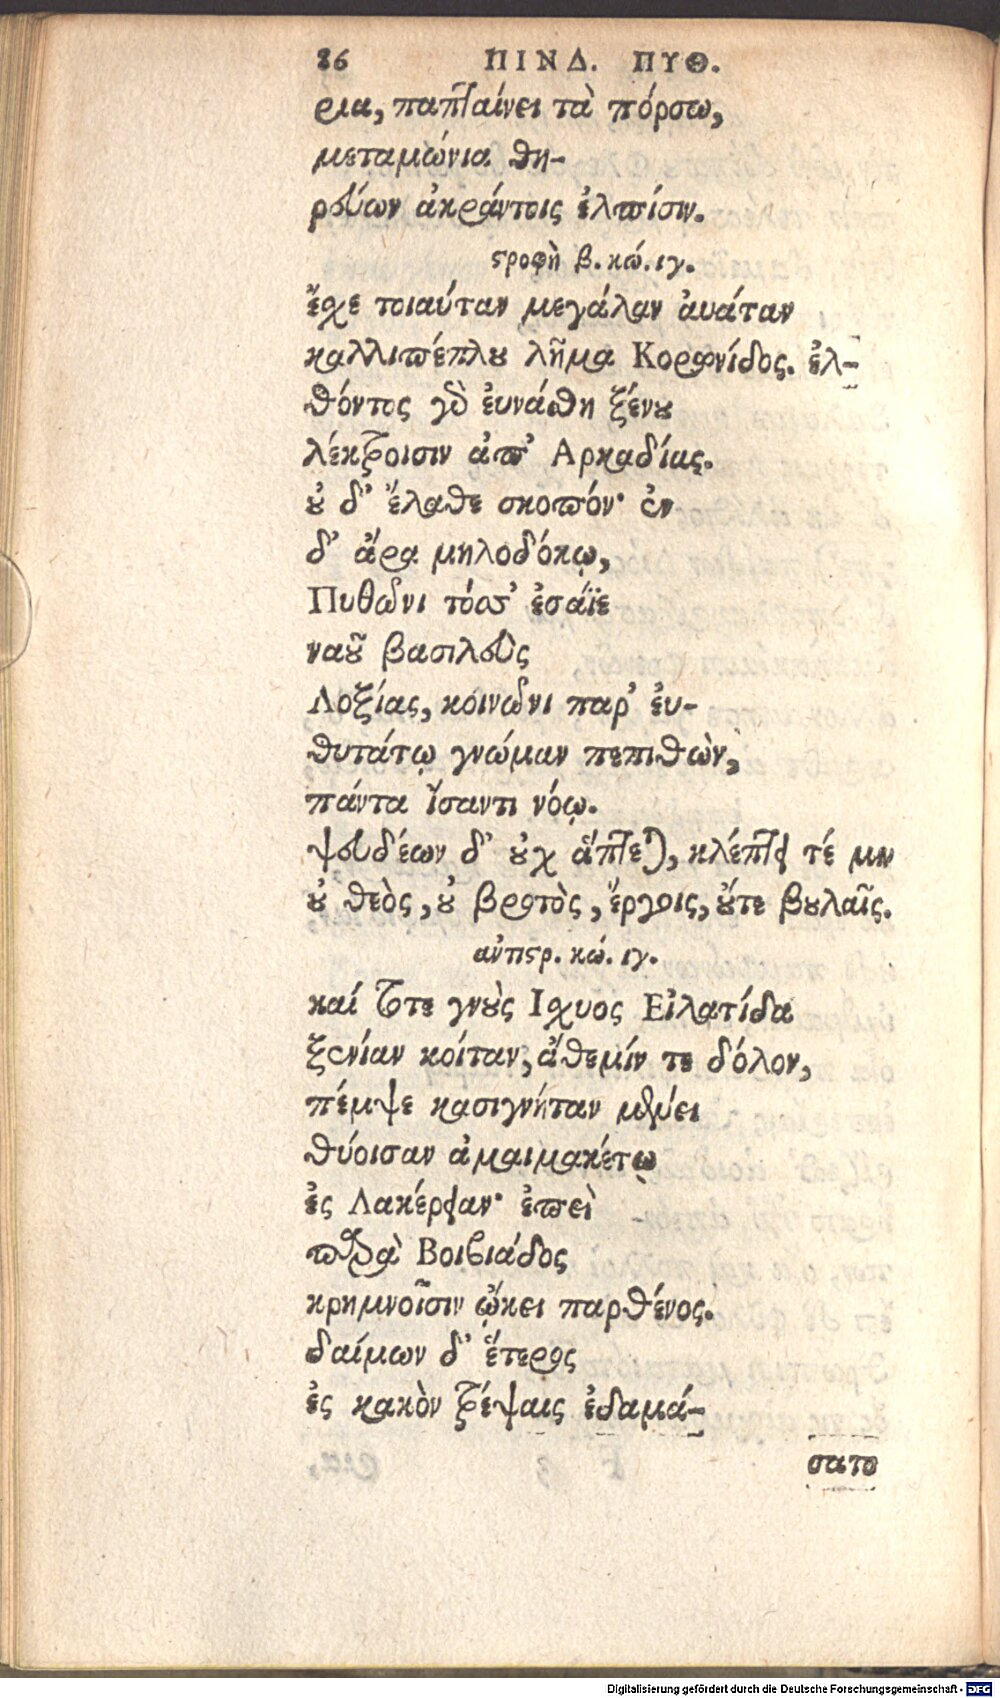 86 ΠΙΝΔ. ΠΥΘ.
ρια, παπταίνει τὰ πόρσω,
μεταμώνια θη-
ρεύων ἀκράντοις ἐλπίσιν.
στροφὴ β. κώ. ιγ.
ἔχε τοιαύταν μεγάλαν ἀυάταν
καλλιπέπλου λῆμα Κορωνίδος. ἐλ-
θόντος γὸ ἐυνάθη ξένου
λέκτροισιν ἀπ' Αρκαδίας.
οὐ δ' ἔλαθε σκοπόν· ἐν
δ' ἄρα μηλοδόκῳ,
Πυθῶνι τόσσ' ἐσάϊε
ναοῦ βασιλεὺς
Λοξίας, κοινῶνι παρ' ἐυ-
θυτάτῳ γνώμαν πεπιθὼν,
πάντα ἴσαντι νόῳ.
ψευδέων δ' οὐχ ἅπτεται, κλέπτει τέ μιν
οὐ θεὸς, οὐ βροτὸς, ἔργοις, οὔτε βουλαῖς.
ἀντιστρ. κώ. ιγ.
καί τότε γνοὺς Ισχυος Εἰλατίδα
ξενίαν κοίταν, ἄθεμίν τε δόλον,
πέμψε κασιγνήταν μένει
θύοισαν ἀμαιμακέτῳ
ἐς Λακέρειαν· ἐπεὶ
παρὰ Βοιβιάδος
κρημνοῖσιν ᾤκει παρθένος.
δαίμων δ' ἕτερος
ἐς κακὸν τρέψαις ἐδαμά-
σατο
Digitalisierung gefördert durch die Deutsche Forschungsgemeinschaft - DFG